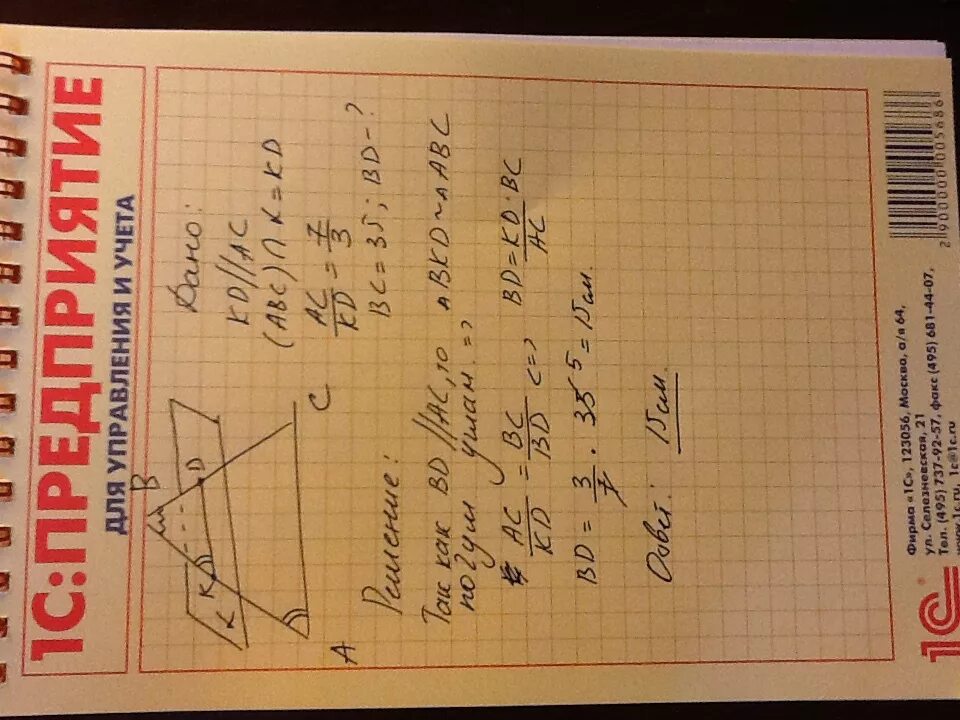 1С:ПРЕДПРИЯТИЕ
ДЛЯ УПРАВЛЕНИЯ И УЧЕТА
Дано:
KD//AC
(ABC)∩K=KD
AC/KD = 7/3
BC=35; BD-?
B
K
K
D
A
C
Решение:
Так как BD//AC, то ΔBKD~ΔABC
по 2ум углам. =>
AC/KD = BC/BD <=> BD = KD·BC/AC
BD = 3/7 · 35 5 = 15 см.
Ответ: 15 см.
Фирма «1С», 123056, Москва, а/я 64,
ул. Селезневская, 21
Тел. (495) 737-92-57, факс (495) 681-44-07,
www.1c.ru, 1c@1c.ru
1С
2 900000 005686